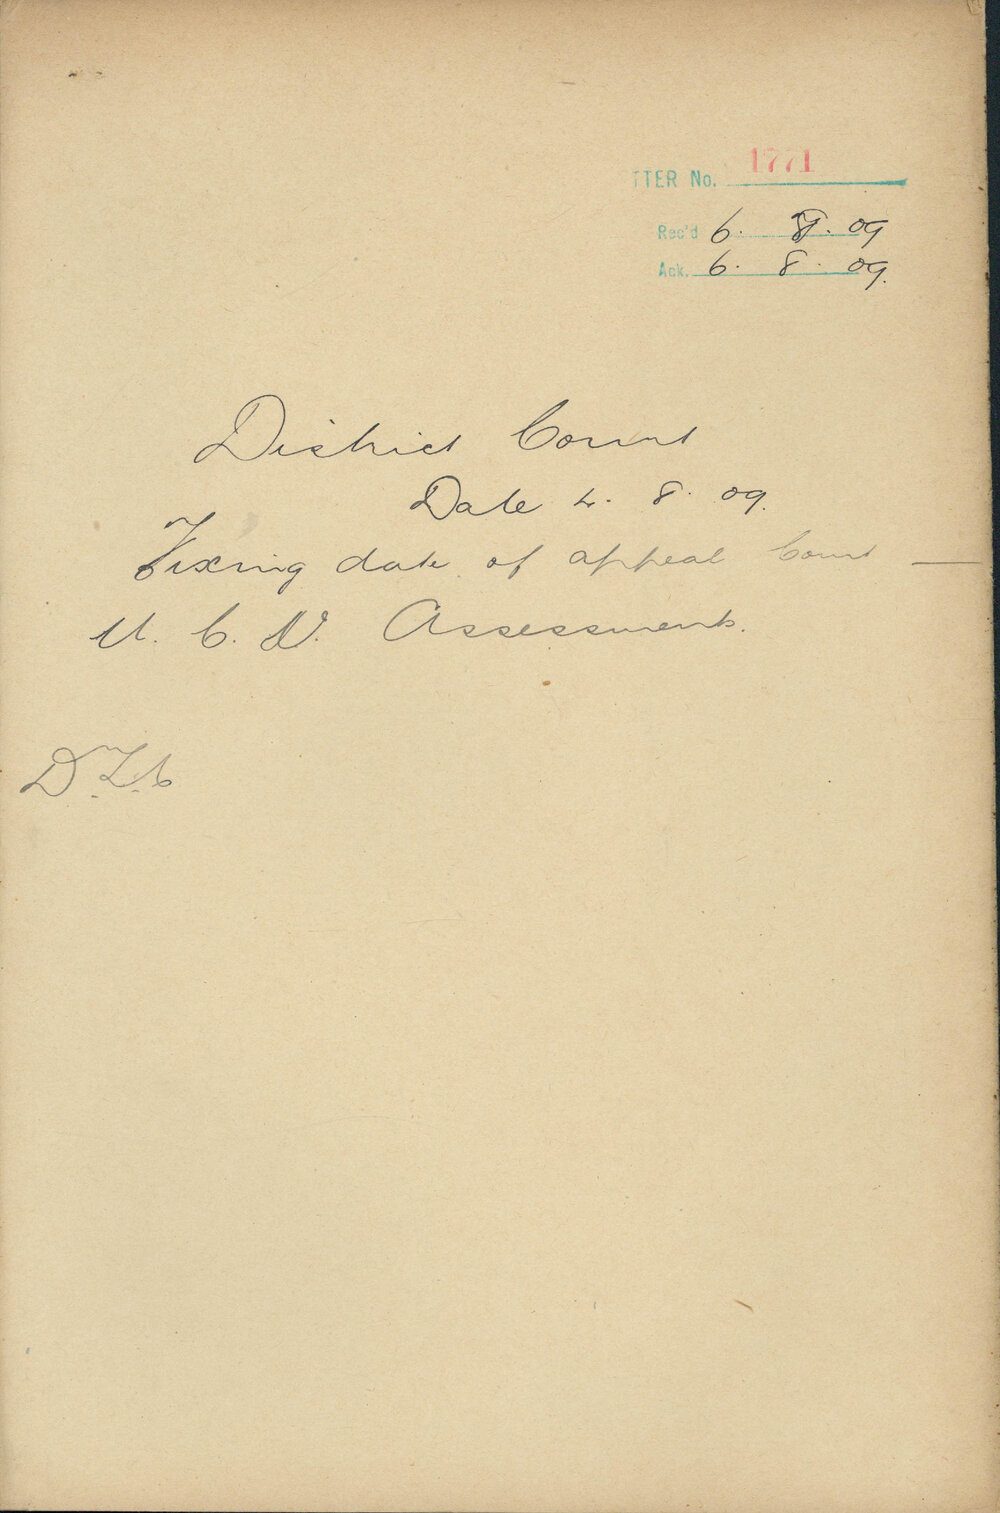 TTER No. 1771
Rec'd 6. 8. 09
Ack. 6. 8. 09.
District Court
Date 4. 8. 09.
Fixing date of appeal Court —
U. C. V. Assessments.
D.T.C